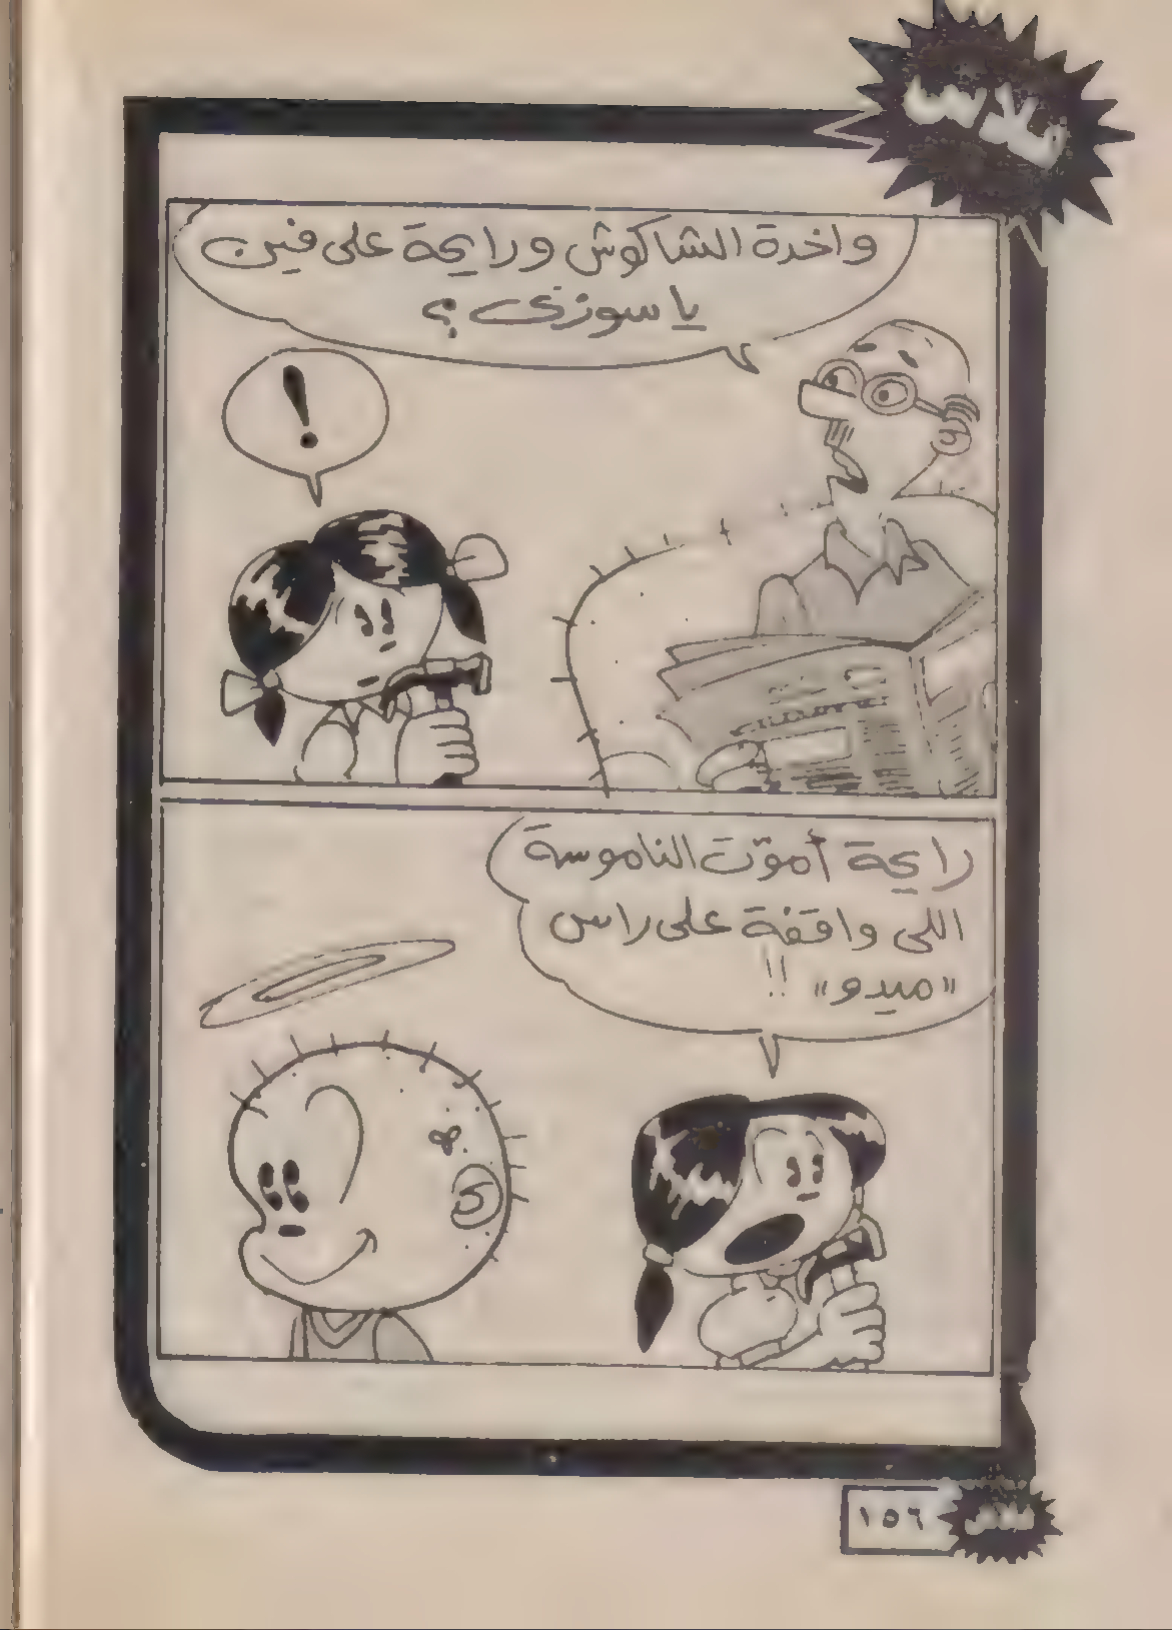 فلاش
واخدة الشاكوش ورايحة على فين
يا سوزى ؟
!
رايحة أموّت الناموسة
اللى واقفة على راس
«ميدو» !!
١٥٦
فلاش